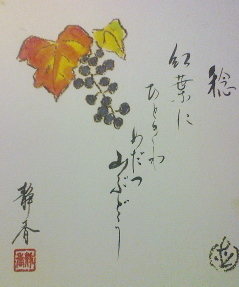 稔
紅葉に
ひときわ
めだつ
山ぶどう
静春